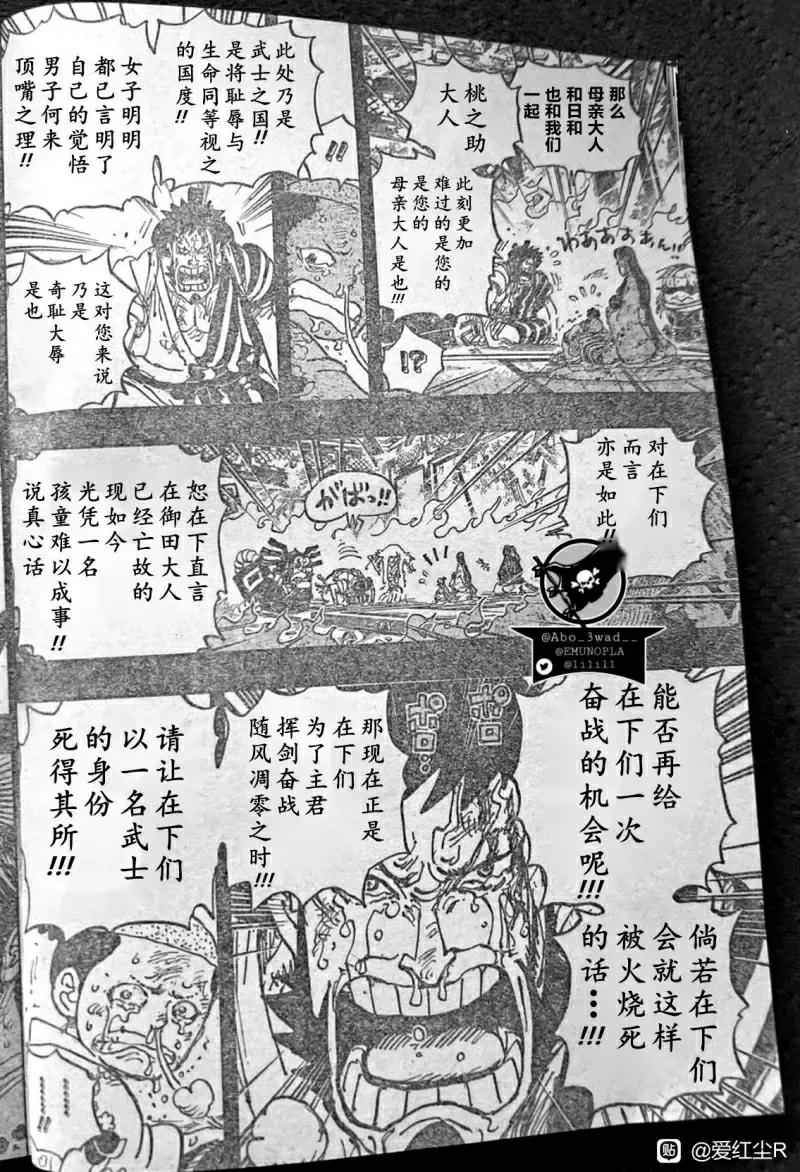 那么
母亲大人
和日和
也和我们
一起
桃之助
大人
此刻更加
难过的是您的
是您的
母亲大人是也!!!
わああああん!!
!?
此处乃是
武士之国!!
是将耻辱与
生命同等视之
的国度!!
!!
女子明明
都已言明了
自己的觉悟
男子何来
顶嘴之理!!
这对您来说
乃是
奇耻大辱
是也
对在下们
而言
亦是如此!!
がばっ!!
恕在下直言
在御田大人
已经亡故的
现如今
光凭一名
孩童难以成事!!
说真心话
@Abo_3wad__
@EMUNOPLA
@lilill
能否再给
在下们一次
奋战的机会呢!!!
倘若在下们
会就这样
被火烧死
的话…!!!
咔
咔…
那现在正是
在下们
为了主君
挥剑奋战
随风凋零之时!!!
请让在下们
以一名武士
的身份
死得其所!!!
………!!
贴 @爱红尘R